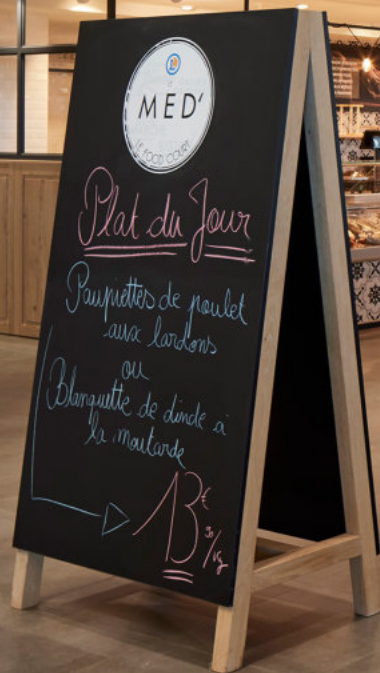 LE
MED'
LE FOOD COURT
Plat du Jour
Paupiettes de poulet
aux lardons
ou
Blanquette de dinde à
la moutarde
13€90/kg